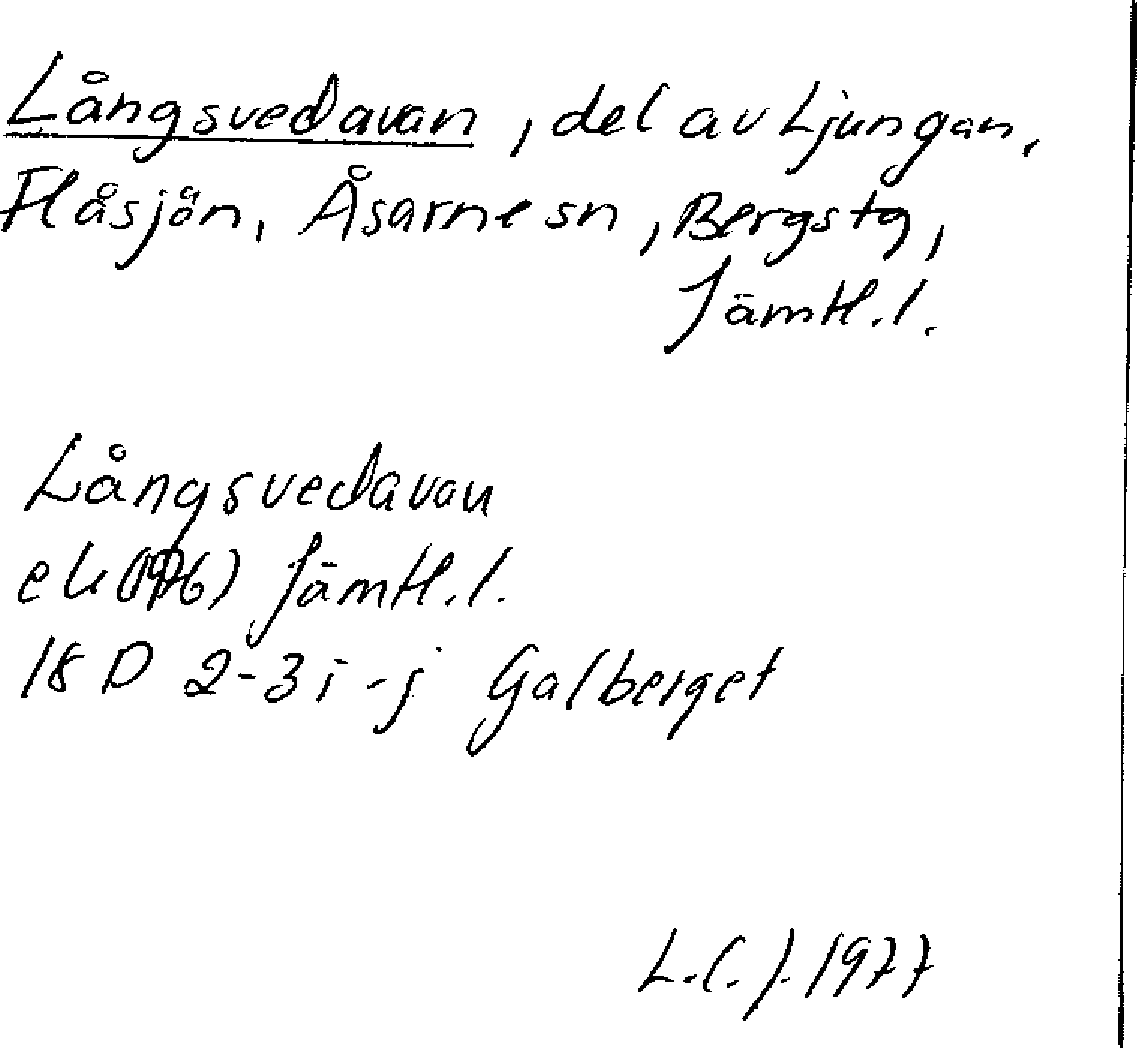 Långsvedavan, del av Ljungan,
Flåsjön, Åsarne sn, Bergs tg,
Jämtl.l.
Långsvedavan
ek (1976) Jämtl.l.
18 D 2-3 i-j Galberget
L.C.J. 1977